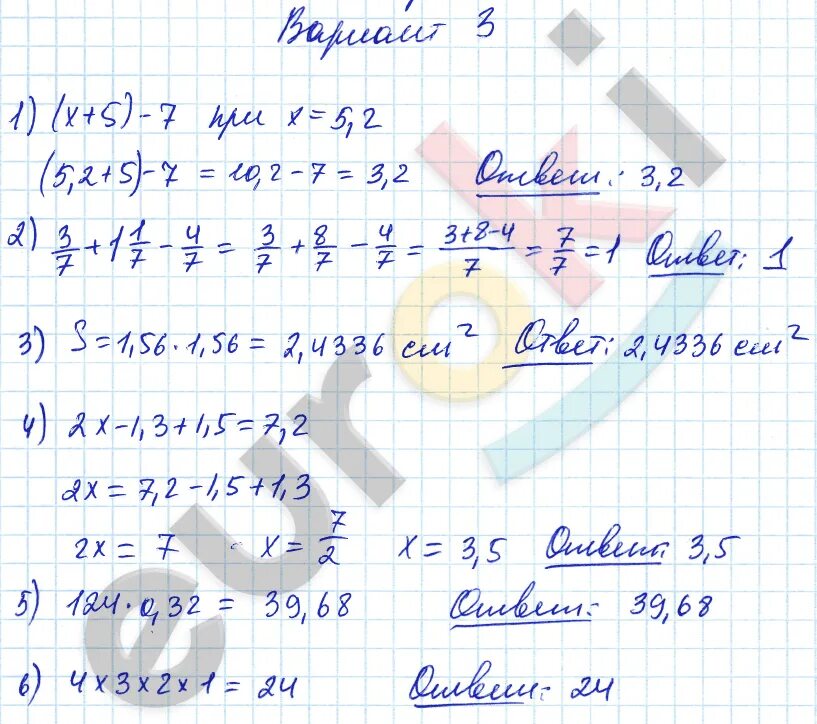 Вариант 3
1) (x+5)-7 при x=5,2
(5,2+5)-7 = 10,2-7 = 3,2 Ответ: 3,2
2) 3/7 + 1 1/7 - 4/7 = 3/7 + 8/7 - 4/7 = (3+8-4)/7 = 7/7 = 1 Ответ: 1
3) S=1,56·1,56 = 2,4336 см² Ответ: 2,4336 см²
4) 2x-1,3+1,5=7,2
2x = 7,2-1,5+1,3
2x = 7 x = 7/2 x = 3,5 Ответ: 3,5
5) 124·0,32 = 39,68 Ответ: 39,68
6) 4×3×2×1 = 24 Ответ: 24
euroki